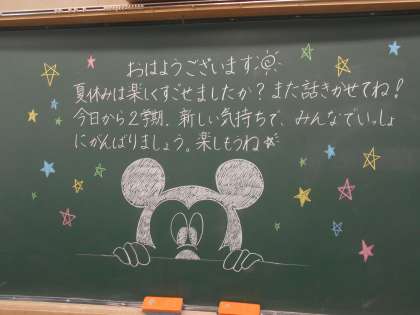 おはようございます
夏休みは楽しくすごせましたか？また話きかせてね！
今日から2学期。新しい気持ちで、みんなでいっしょ
にがんばりましょう。楽しもうね